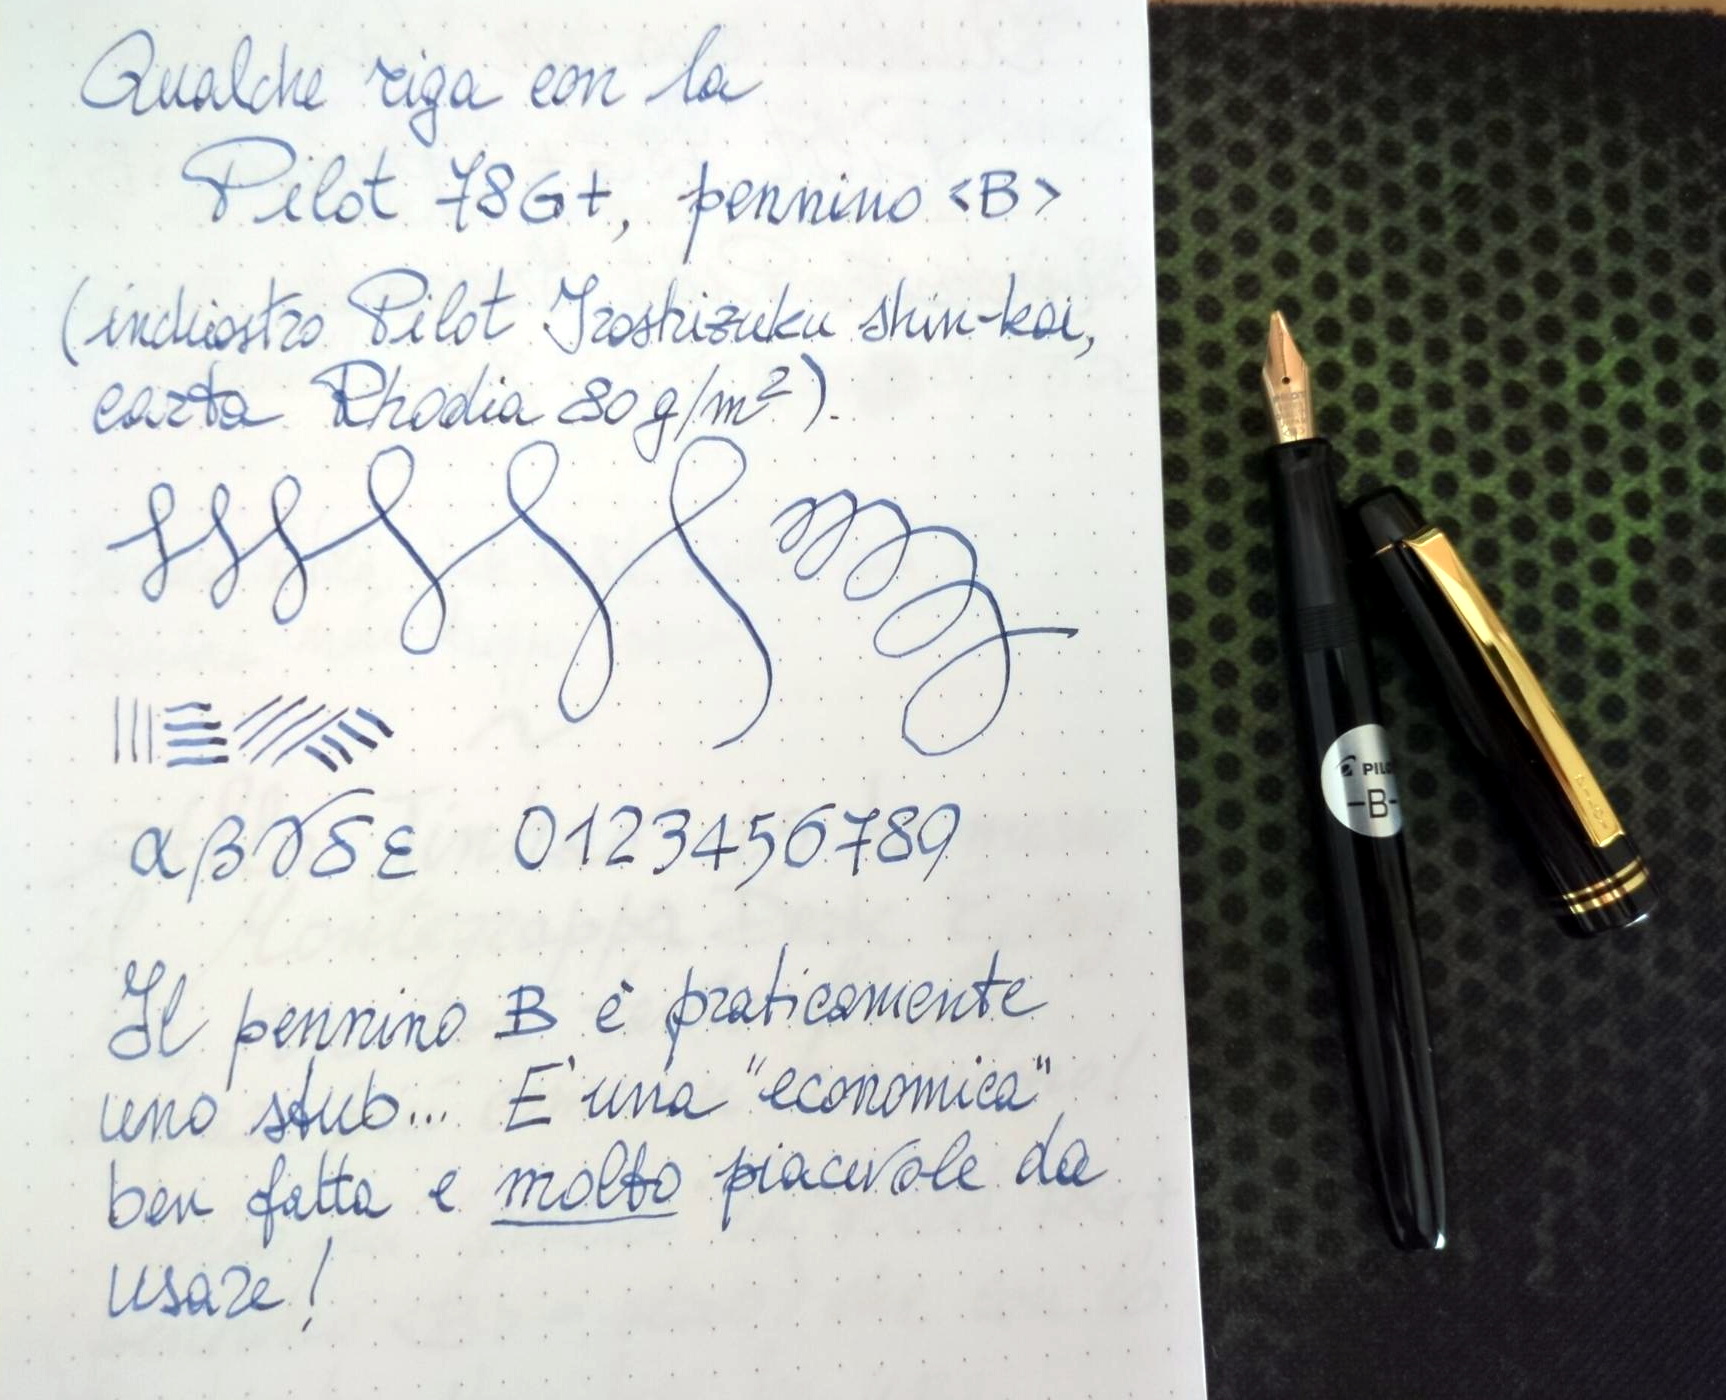 Qualche riga con la
Pilot 78G+, pennino <B>
(inchiostro Pilot Iroshizuku shin-kai,
carta Rhodia 80 g/m²).
α β γ δ ε 0123456789
Il pennino B è praticamente
uno stub... E' una "economica"
ben fatta e molto piacevole da
usare!
PILO
-B-